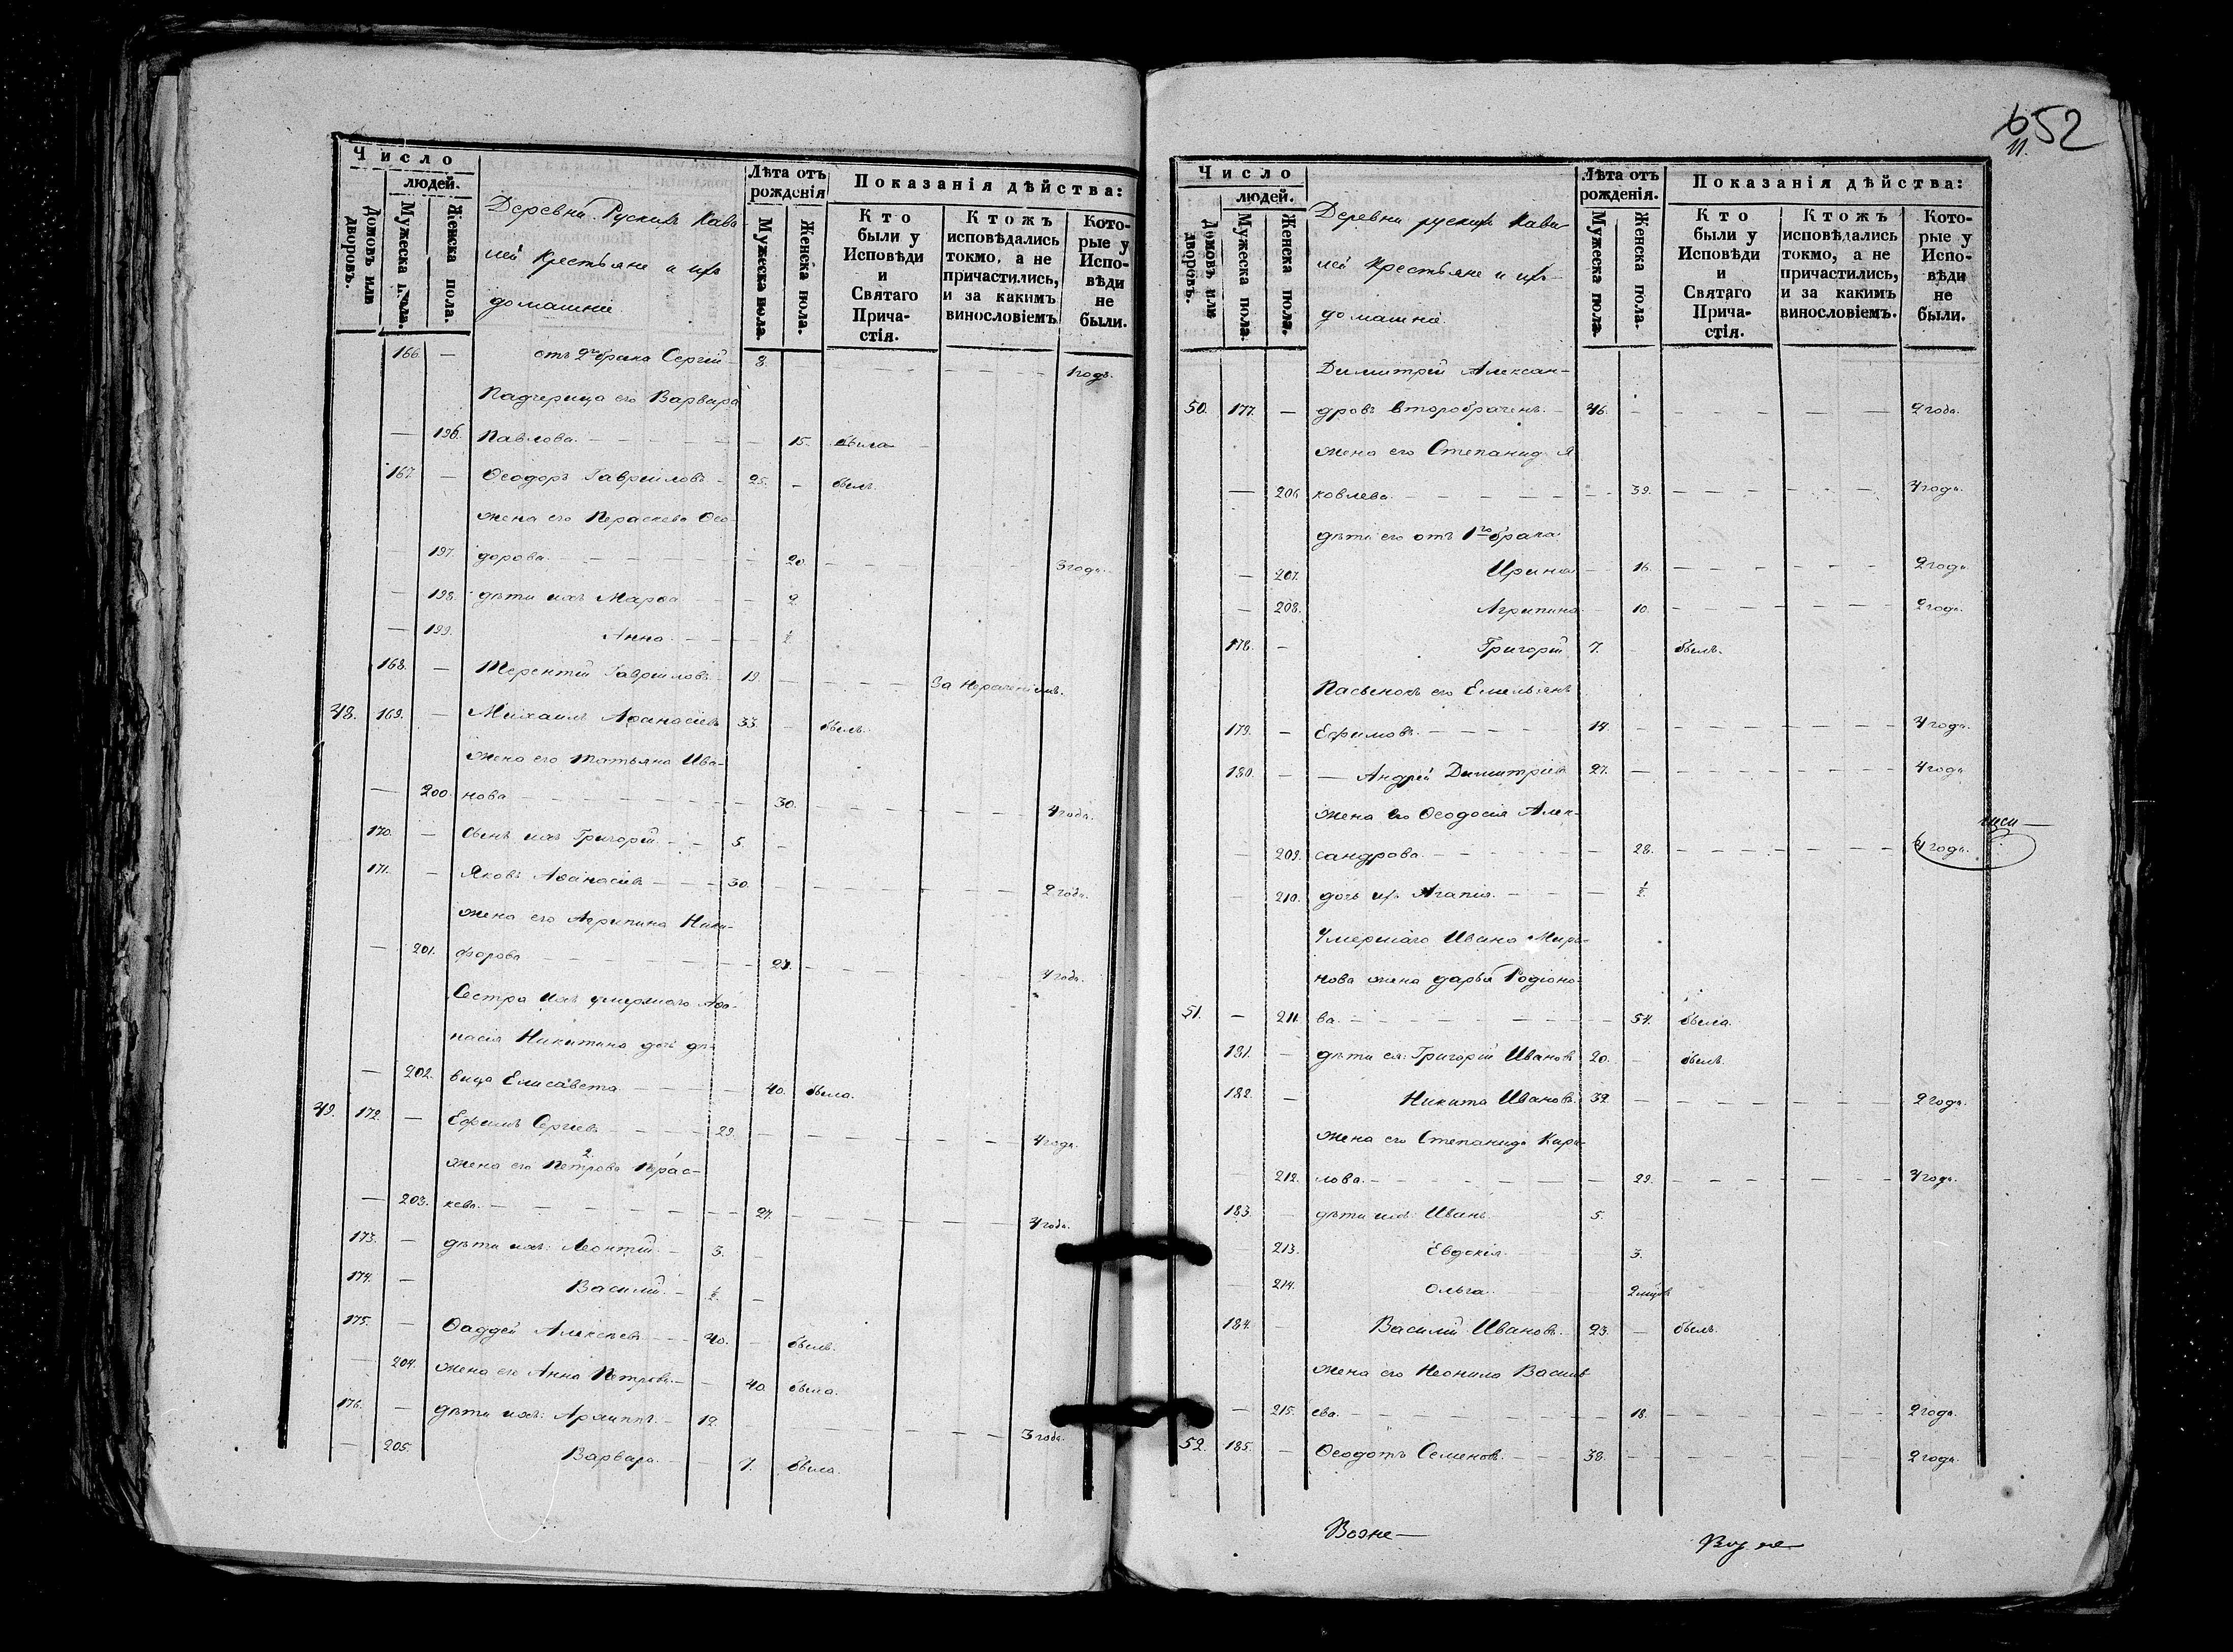 Число
людей.
Домовъ или дворовъ.
Мужеска пола.
Женска пола.
Деревни Рускихъ Кава
лей Крестьяне и ихъ
домашніе.
Лѣта отъ рожденія
Мужеска пола.
Женска пола.
Показанія дѣйства:
Кто были у Исповѣди и Святаго Прича-стія.
Ктожъ исповѣдались токмо, а не причастились, и за какимъ винословіемъ
Кото-рые у Испо-вѣди не были.
166. — отъ 2го брака Сергій — 8. — 1 годъ.
Падчерица его Варвара
— 196. Павлова. — 15. была
167. — Ѳеодоръ Гавриловъ — 25. — былъ
жена его Параскева Ѳео-
— 197. дорова. — 20. — 3 года.
— 198. дѣти ихъ Марѳа — 2
— 199. Анна. — ½
168. — Терентій Гавриловъ — 19. — За нераченіемъ.
48. 169. — Михаилъ Аѳанасіевъ 33. — былъ.
жена его Татьяна Ива-
— 200. нова — 30. — 4 года.
170. — Сынъ ихъ Григорій — 5. —
171. — Яковъ Аѳанасіевъ — 30. — 2 года.
жена его Агрипина Ники-
— 201. форова — 4 года.
Сестра ихъ умершаго Аѳа-
насія Никитина дочь дѣ-
— 202. вица Елисавета — 40. была.
49. 172. — Ефимъ Сергіевъ — 29. — 4 года.
жена его Петрова Парас-
— 203. кева. — 27. — 4 года.
173. — дѣти ихъ: Леонтій. — 3. —
174. — Василій. — ½. —
175. — Ѳаддей Алексѣевъ — 40. — былъ.
— 204. жена его Анна Петрова — 40. была.
176. — дѣти ихъ: Архиппъ. — 12. — 3 года.
— 205. Варвара. — 7. была.
652
11.
Число
людей.
Домовъ или дворовъ.
Мужеска пола.
Женска пола.
Деревни рускихъ Кава-
лей Крестьяне и ихъ
домашніе.
Лѣта отъ рожденія.
Мужеска пола.
Женска пола.
Показанія дѣйства:
Кто были у Исповѣди и Святаго Прича-стія.
Ктожъ исповѣдались токмо, а не причастились, и за какимъ винословіемъ.
Кото-рые у Испо-вѣди не были.
Димитрій Алексан-
50. 177. — дровъ второбраченъ. — 46. — 2 года.
жена его Степанид. Я
— 206. ковлева. — 39. — 4 года.
дѣти его отъ 1го брака
— 207. Ирина — 16. — 2 года
— 208. Агрипина — 10. — 2 года.
178. — Григорій 7. — былъ.
Пасынокъ его Емельянъ
179. — Ефимовъ. — 14. — 4 года.
180. — — Андрей Димитріевъ 27. — 4 года
жена его Ѳеодосія Алек-
— 209. сандрова. — 28. — 4 года.
— 210. дочь ихъ Агапія. — ½.
Умершаго Ивана Миро-
нова жена Дарья Родіоно-
51. — 211. ва. — 54. была.
181. — дѣти ея: Григорій Ивановъ 20. — былъ
182. — Никита Ивановъ. 32. — 2 года.
жена его Степанида Кири-
— 212. лова. — 29. — 4 года.
183. — дѣти ихъ: Иванъ — 5.
213. Евдокія. — 3.
— 214. Ольга.
184. — Василій Ивановъ. 23. — былъ.
жена его Неонила Василь
— 215. ева. — 18. — 2 года.
52. 185. — Ѳеодотъ Семеновъ. — 38. — 2 года.